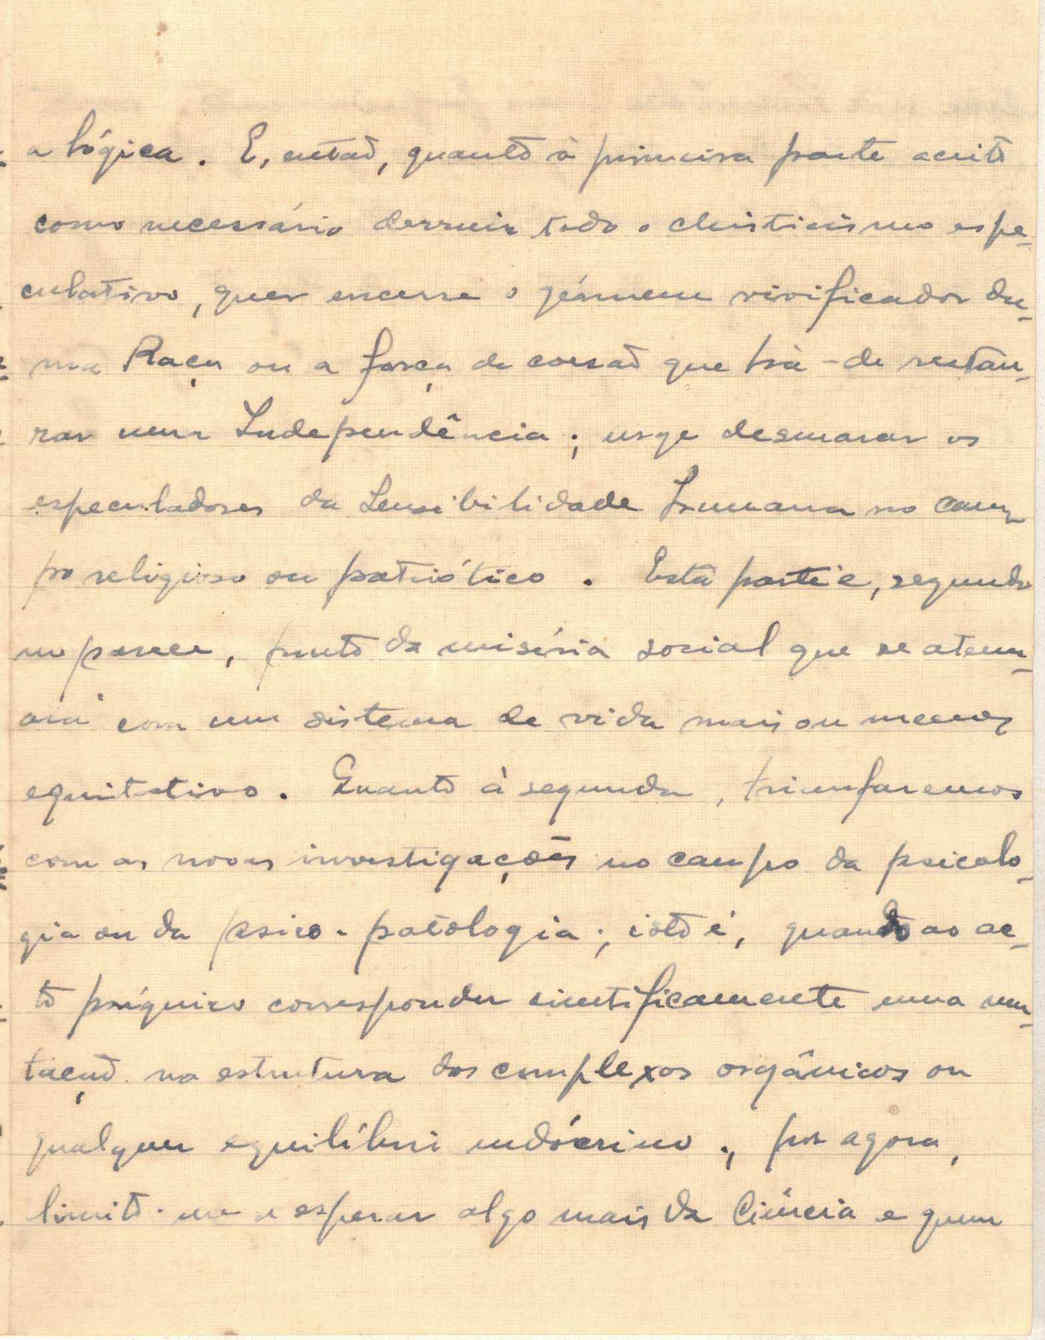 a lógica. E, então, quanto à primeira parte aceito
como necessário derruir todo o christicismo espe-
culativo, quer encerre o gérmem vivificador du-
ma Raça ou a força de coesão que há-de restau-
rar uma Independência; urge desmarar os
especuladores da Sensibilidade humana no cam-
po religioso ou patriótico. Esta parte é, segundo
me parece, fruto da miséria social que se atenu-
ará com um sistema de vida mais ou menos
equitativo. Quanto à segunda, triunfaremos
com as novas investigações no campo da psicolo-
gia ou da psico-patologia; isto é, quando ao ac-
to psíquico corresponder cientificamente uma mu-
tação na estrutura dos complexos orgânicos ou
qualquer equilíbrio endócrino; por agora,
limito-me a esperar algo mais da Ciência e quem